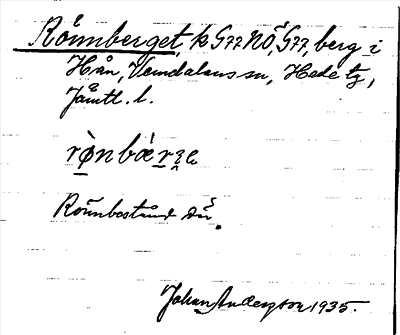 Rönnberget, k G77 NÖ, G77, berg i
Hån, Vemdalens sn, Hede tg,
Jämtl. l.
rø̀nbærʒe
Rönnbestånd där.
Johan Anderzson 1935.